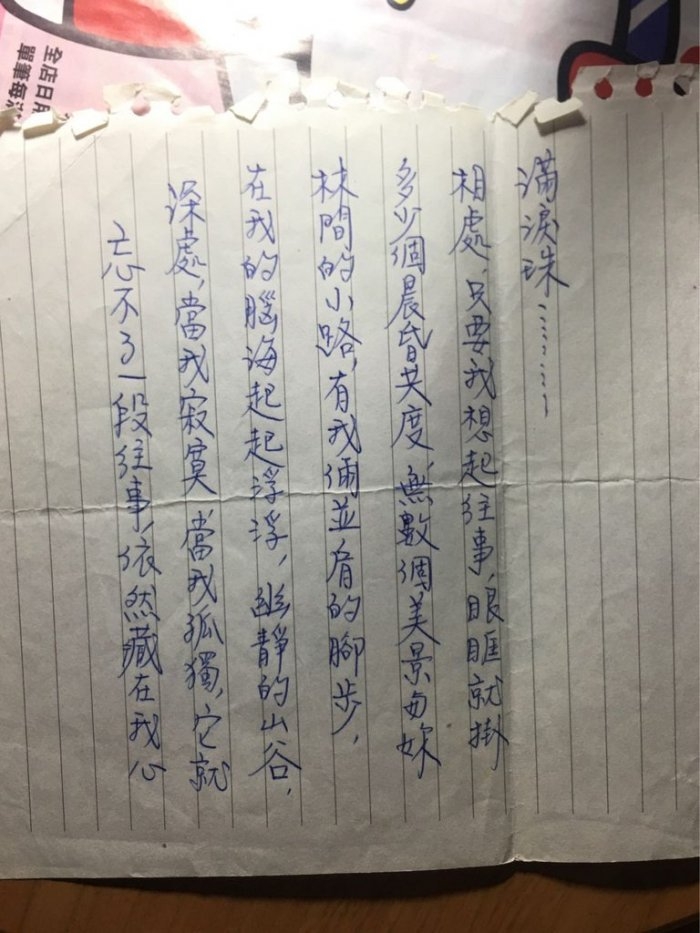 全店日
單筆每
忘不了一段往事，依然藏在我心
深處，當我寂寞 當我孤獨，它就
在我的腦海起起浮浮，幽靜的山谷，
林間的小路，有我倆並肩的腳步，
多少個晨昏共度 無數個美景与妳
相處，只要我想起往事，眼眶就掛
滿淚珠………